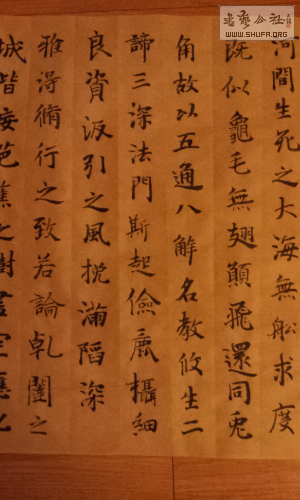 書藝公社
WWW.SHUFA.ORG
河間生死之大海無舩求度
既似龜毛無翅願飛還同兔
角故以五通八解名教攸生二
諦三深法門斯起儉麁攝細
良資汲引之風挽滿陷深
雅得脩行之致若論乹闥之
城皆妄芭蕉之樹盡空應化